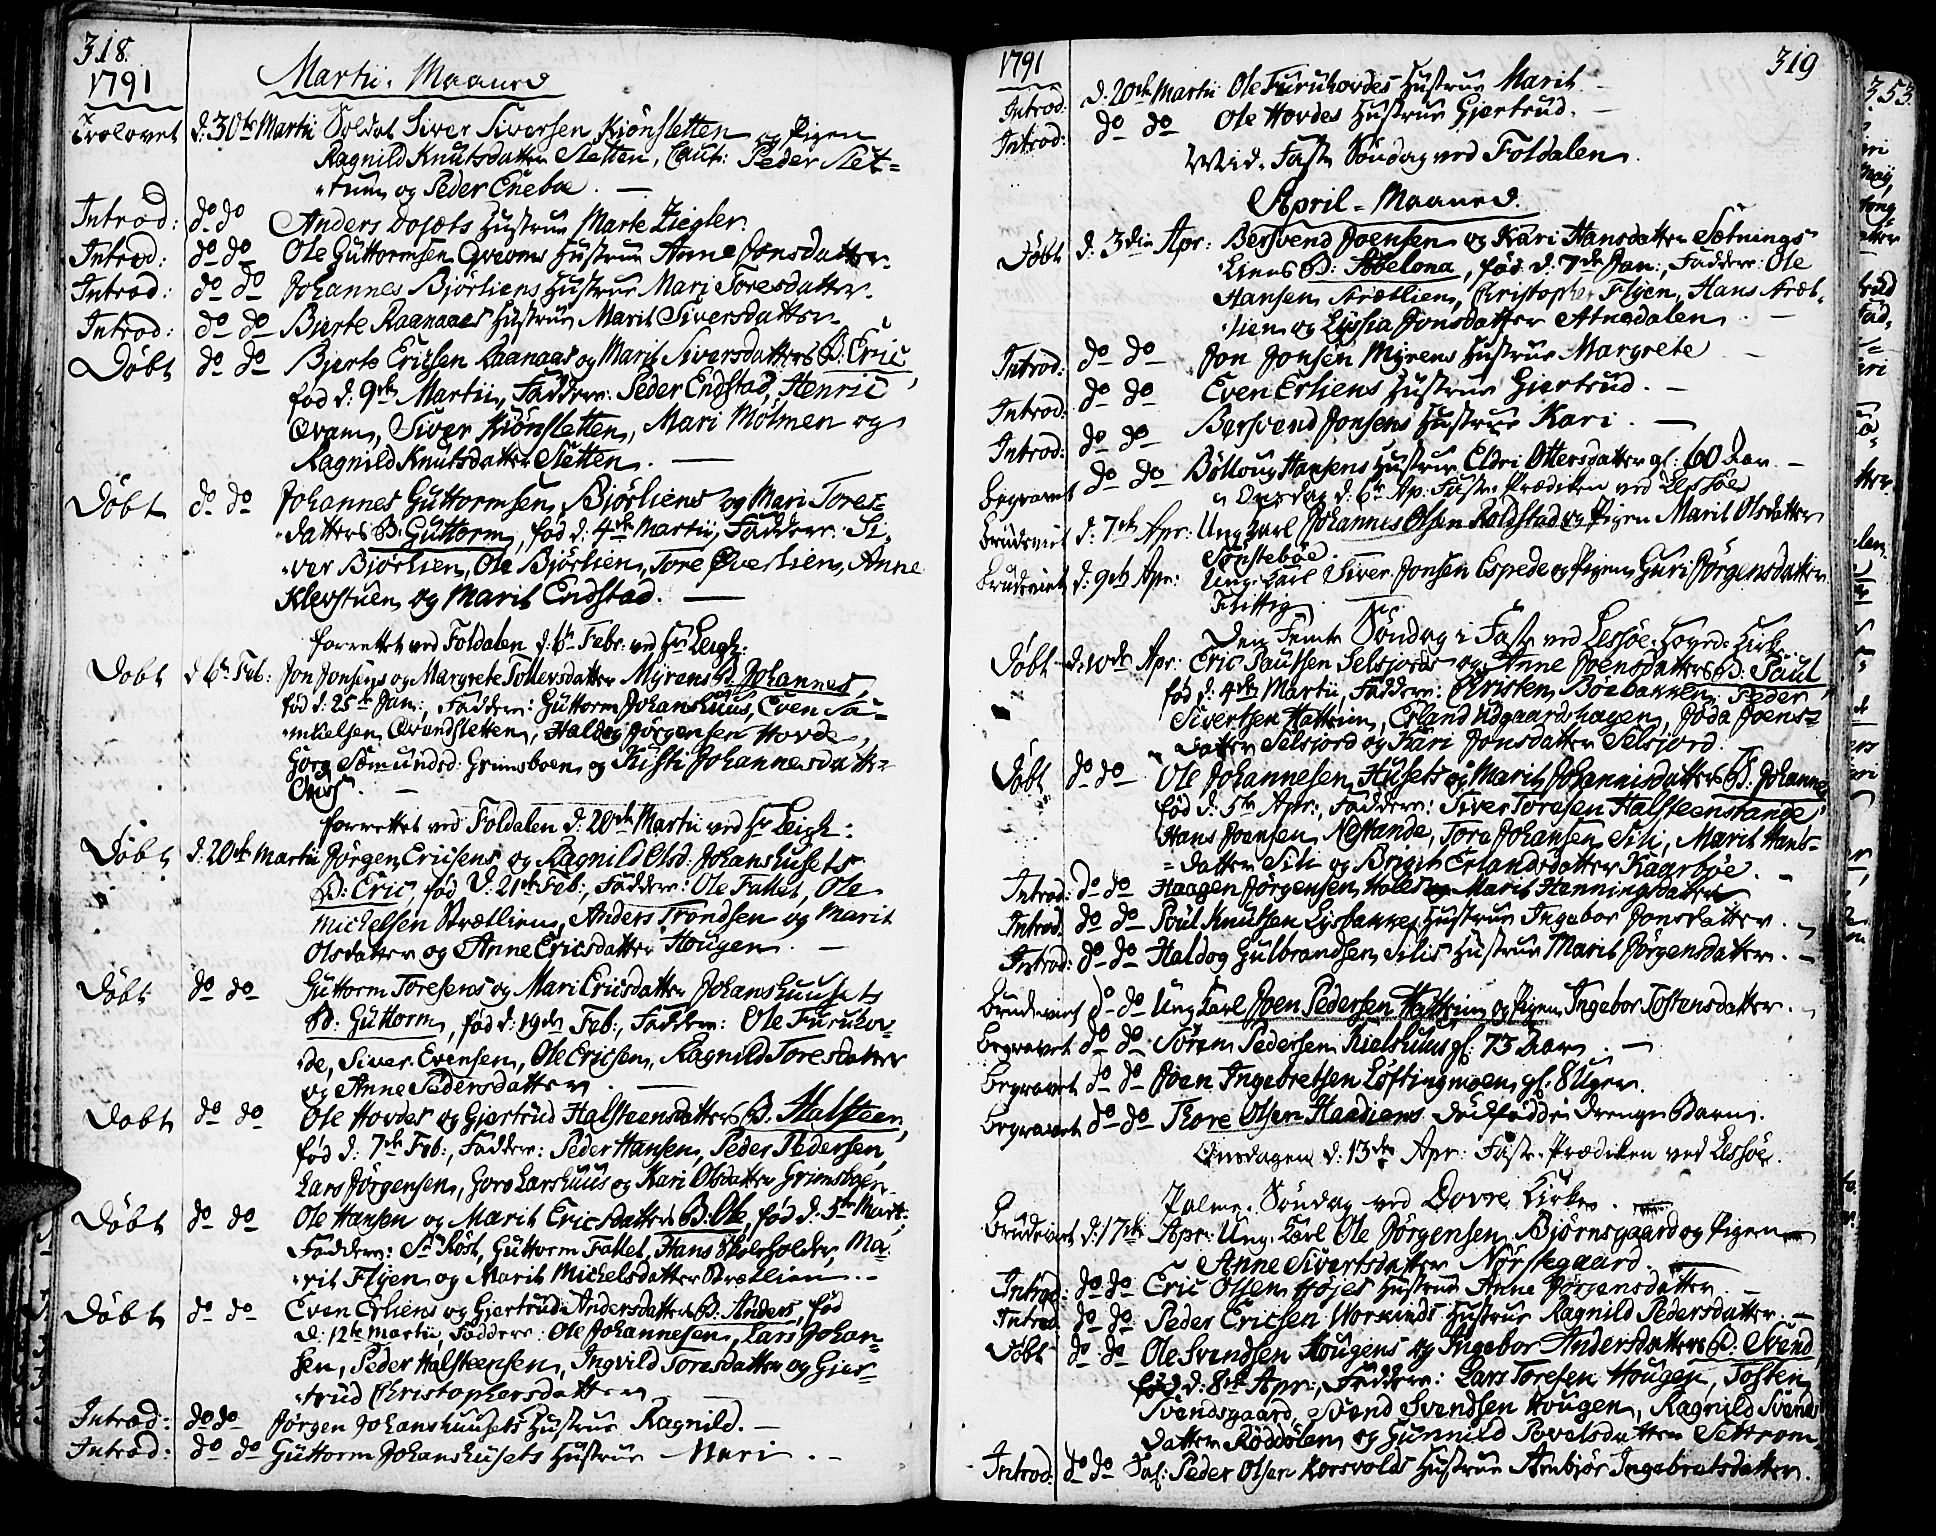 318.
1791
Martii Maaned
Trolovet d: 30te Martii Soldat Siver Siversen Kiönsletten og Pigen
Ragnild Knutsdatter Sletten, Caut: Peder Slet-
-tum og Peder Eneboe. —
Introd: do do Anders Dosæts Hustrue Marte Ziegler.
Introd: do do Ole Guttormsen Qvams Hustrue Anne Jonsdatter.
Introd: do do Johannes Bjørliens Hustrue Mari Toresdatter.
Introd: do do Bierte Raanaaes Hustrue Marit Siversdatter
Døbt do do Bjerte Ericsen Raanaas og Marit Siversdatters B: Eric,
fød d: 9de Martii, Faddere: Peder Endstad, Henric
Qvam, Siver Kiönsletten, Mari Molmen og
Ragnild Knutsdatter Sletten. —
Døbt do do Johannes Guttormsen Bjørliens og Mari Tores-
-datters B: Guttorm, fød d: 4de Martii, Faddere: Si-
-ver Bjørlien, Ole Bjørlien, Tore Øverlien, Anne
Klevstuen og Marit Endstad. —
forrettet ved Foldalen d: 6te Febr: ved Hr Leigh:
Døbt d 6te Feb: Jon Jonsens og Margrete Tollersdatter Myrens B: Johannes,
fød d: 25de Jan:, Faddere: Guttorm Johanshuus, Even Sa-
-muelsen Qvandsletten, Haldog Jørgensen Hovde,
Goro Somundsd: Grimsboen og Kisti Johannesdatter

forrettet ved Foldalen d: 20de Martii ved Hr Leigh:
Døbt d: 20de Martii Jørgen Ericsens og Ragnild Olsd: Johanshusets
B: Eric, fød d: 21de Feb:, Faddere: Ole Fallet, Ole
Michelsen Strætlien, Anders Trondsen og Marit
Olsdatter og Anne Ericsdatter Hougen. —
Døbt do do Guttorm Toresens og Mari Ericsdatter Johanshuusets
B: Guttorm, fød d: 19de Feb:, Faddere: Ole Furuhov-
-de, Siver Evensen, Ole Ericsen, Ragnild Toresdatter
og Anne Pedersdatter. —
Døbt do do Ole Hovdes og Gjertrud Halsteensdatters B: Halsteen,
fød d: 7de Feb:, Faddere: Peder Hansen, Peder Pedersen,
Lars Jørgensen, Goro Larshuus og Kari Olsdatter Grimsboen.
Døbt do do Ole Hansen og Marit Ericsdatters B: Ole, fød d: 5te Mart:,
Faddere: Sr Røst, Guttorm Fallet, Hans Skoleholder, Ma-
-rit Flyen og Marit Michelsdatter Strætlien. -
Døbt do do Even Erliens og Gjertrud Andersdatters B: Anders, fød
d: 12te Martii, Faddere: Ole Johannesen, Lars Johan-
sen, Peder Halsteensen, Ingvild Toresdatter og Gjer-
-trud Christophersdatter
Introd: do do Jørgen Johanshuusets Hustrue Ragnild. —
Introd: do do Guttorm Johanshusets Hustrue Mari. -
1791 319
Introd: d: 20de Martii Ole Furuhovdes Hustrue Marit. —
Introd: do do Ole Hovdes Hustrue Gjertrud. -
Mid-Faste Søndag ved Foldalen.
April-Maaned.
Døbt d: 3die Apr: Bersvend Joensen og Kari Hansdatter Sætnings-
-liens B: Abelona, fød d: 7de Jan:, Faddere: Ole
Hansen Strætlien, Christopher Flyen, Hans Stræt-
-lien og Lyssia Jonsdatter Atnedalen. —
Introd: do do Jon Jonsen Myrens Hustrue Margrete —
Introd: do do Even Erliens Hustrue Giertrud. —
Introd: do do Bersvend Jonsens Hustrue Kari. —
Begravet do do Bölloug Hansens Hustrue Eldri Ottersdatter gl: 60 Aar. —
Onsdag d: 6te Ap: Faste-Prædiken ved Lessøe
Brudeviet d: 7de Apr: Ung Karl Johannes Olsen Roldstad og Pigen Marit Olsdatter
Tønsteböe. —
Brudeviet d: 9de Apr: Ung Karl Siver Jonsen Espede og Pigen Guri Jørgensdatter
Flittig —
Den Femte Søndag i Faste ved Lessøe-Hoved-Kirk.
Døbt d: 10de Apr: Eric Paulsen Selsjords og Anne Joensdatters B: Paul
fød d: 4de Martii, Faddere: Christen Böebakken, Peder
Sivertsen Hattrim, Erland Udgaardshagen, Joda Joens-
-datter Selsjord og Kari Jonsdatter Selsjord.
Døbt do do Ole Johannesen Husets og Marit Johannisdatters B: Johannes
fød d: 5te Apr:, Faddere: Siver Toresen Halsteenstande,
Hans Joensen Nestande, Tore Johansen Sili, Marit Hans-
-datter Sili og Brigit Erlandsdatter Kaarböe. —
Introd: do do Haagen Jørgensen Holes og Marit Henningsdatter
Introd. do do Poul Knutsen Lysbakkes Hustrue Ingebor Jonsdatter. -
Introd: do do Haldog Gulbrandsen Silis Hustrue Marit Jørgensdatter. -
Brudeviet do do Ung Karl Joen Pedersen Hattrim og Pigen Ingebor Tostensdatter.
Begravet do do Sören Pedersen Nielshuus gl. 73 Aar. —
Begravet do do Joen Ingebretsen Löftingmoen gl: 8 Uger.
Begravet do do Tore Olsen Haadiens dødfødde Drenge-Barn.
Onsdagen d: 13de Apr: Faste-Prædiken ved Lessøe.
Palme-Søndag ved Dovre Kirke.
Brudeviet d: 17de Apr: Ung-Karl Ole Jørgensen Bjørnsgaard og Pigen
Anne Sivertsdatter Norstegaard. —
Introd: do do Eric Olsen Höjes Hustrue Anne Jørgensdatter. —
Introd: do do Peder Ericsen Vorkinds Hustrue Ragnild Pedersdatter. —
Døbt do do Ole Svendsen Hougens og Ingebor Andersdatters B: Svend
fød d: 8de Apr:, Faddere: Lars Toresen Hougen, Tosten
Svendsgaard, Svend Svendsen Hougen, Ragnild Svends-
datter Røddølen og Gunnild Povelsdatter Settrom.
Introd: do do Sal: Peder Olsen Korsvolds Hustrue Arnbjør Ingebretsdatter.
353